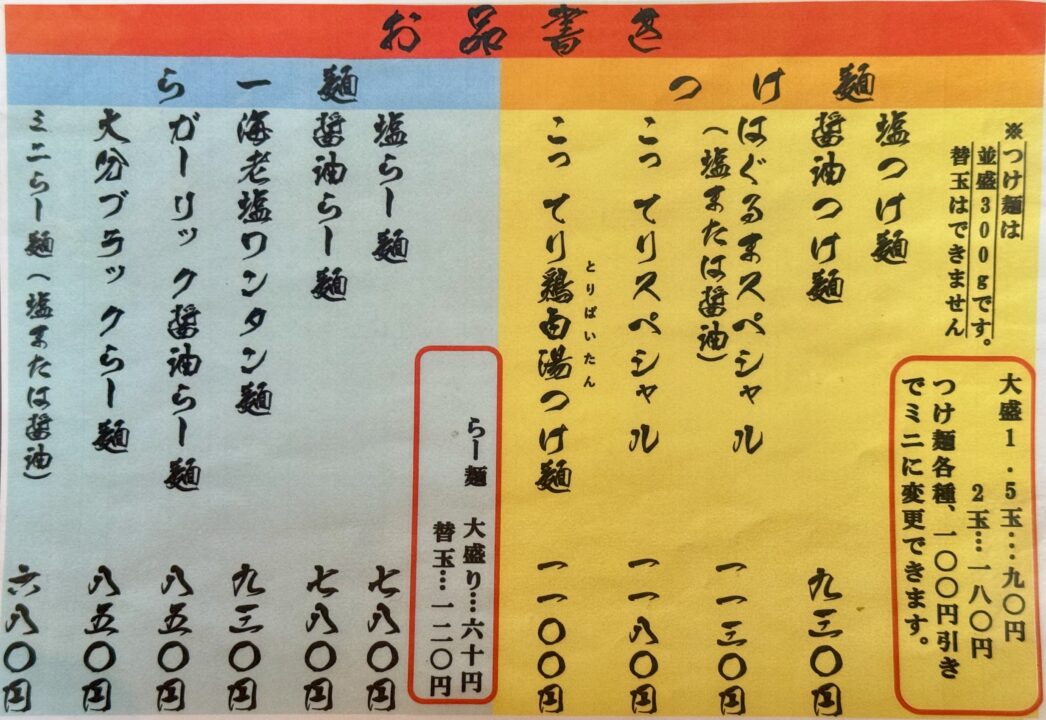 お品書き
つけ麺
※つけ麺は
並盛300gです。
替玉はできません
大盛1.5玉…九〇円
2玉…一八〇円
つけ麺各種、一〇〇円引き
でミニに変更できます。
塩つけ麺
醤油つけ麺 九三〇円
はぐるまスペシャル
(塩または醤油) 一一三〇円
こってりスペシャル 一一八〇円
とりぱいたん
こってり鶏白湯つけ麺 一一〇〇円
らー麺
らー麺 大盛り…六十円
替玉…一二〇円
塩らー麺 七八〇円
醤油らー麺 七八〇円
海老塩ワンタン麺 九三〇円
ガーリック醤油らー麺 八五〇円
大分ブラックらー麺 八五〇円
ミニらー麺(塩または醤油) 六八〇円